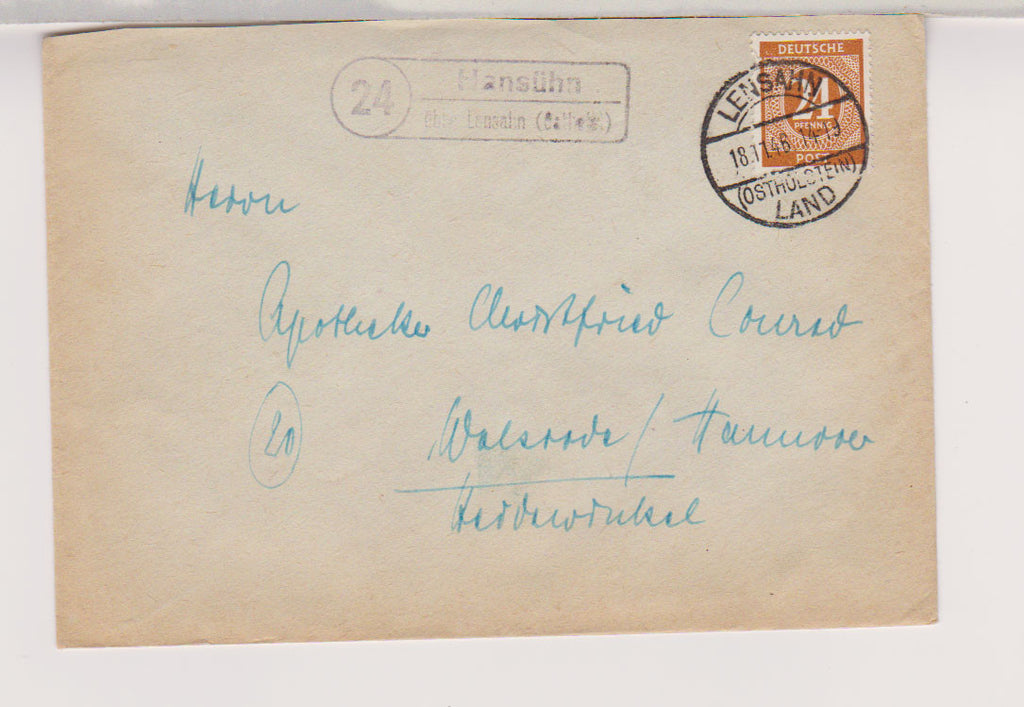 24
Hansühn
über Lensahn (Ostholst.)
DEUTSCHE
24
PFENNIG
POST
LENSAHN
18.11.46
(OSTHOLSTEIN)
LAND
Herrn
Apotheker Christfried Conrad
20
Walsrode / Hannover
Heidewinkel